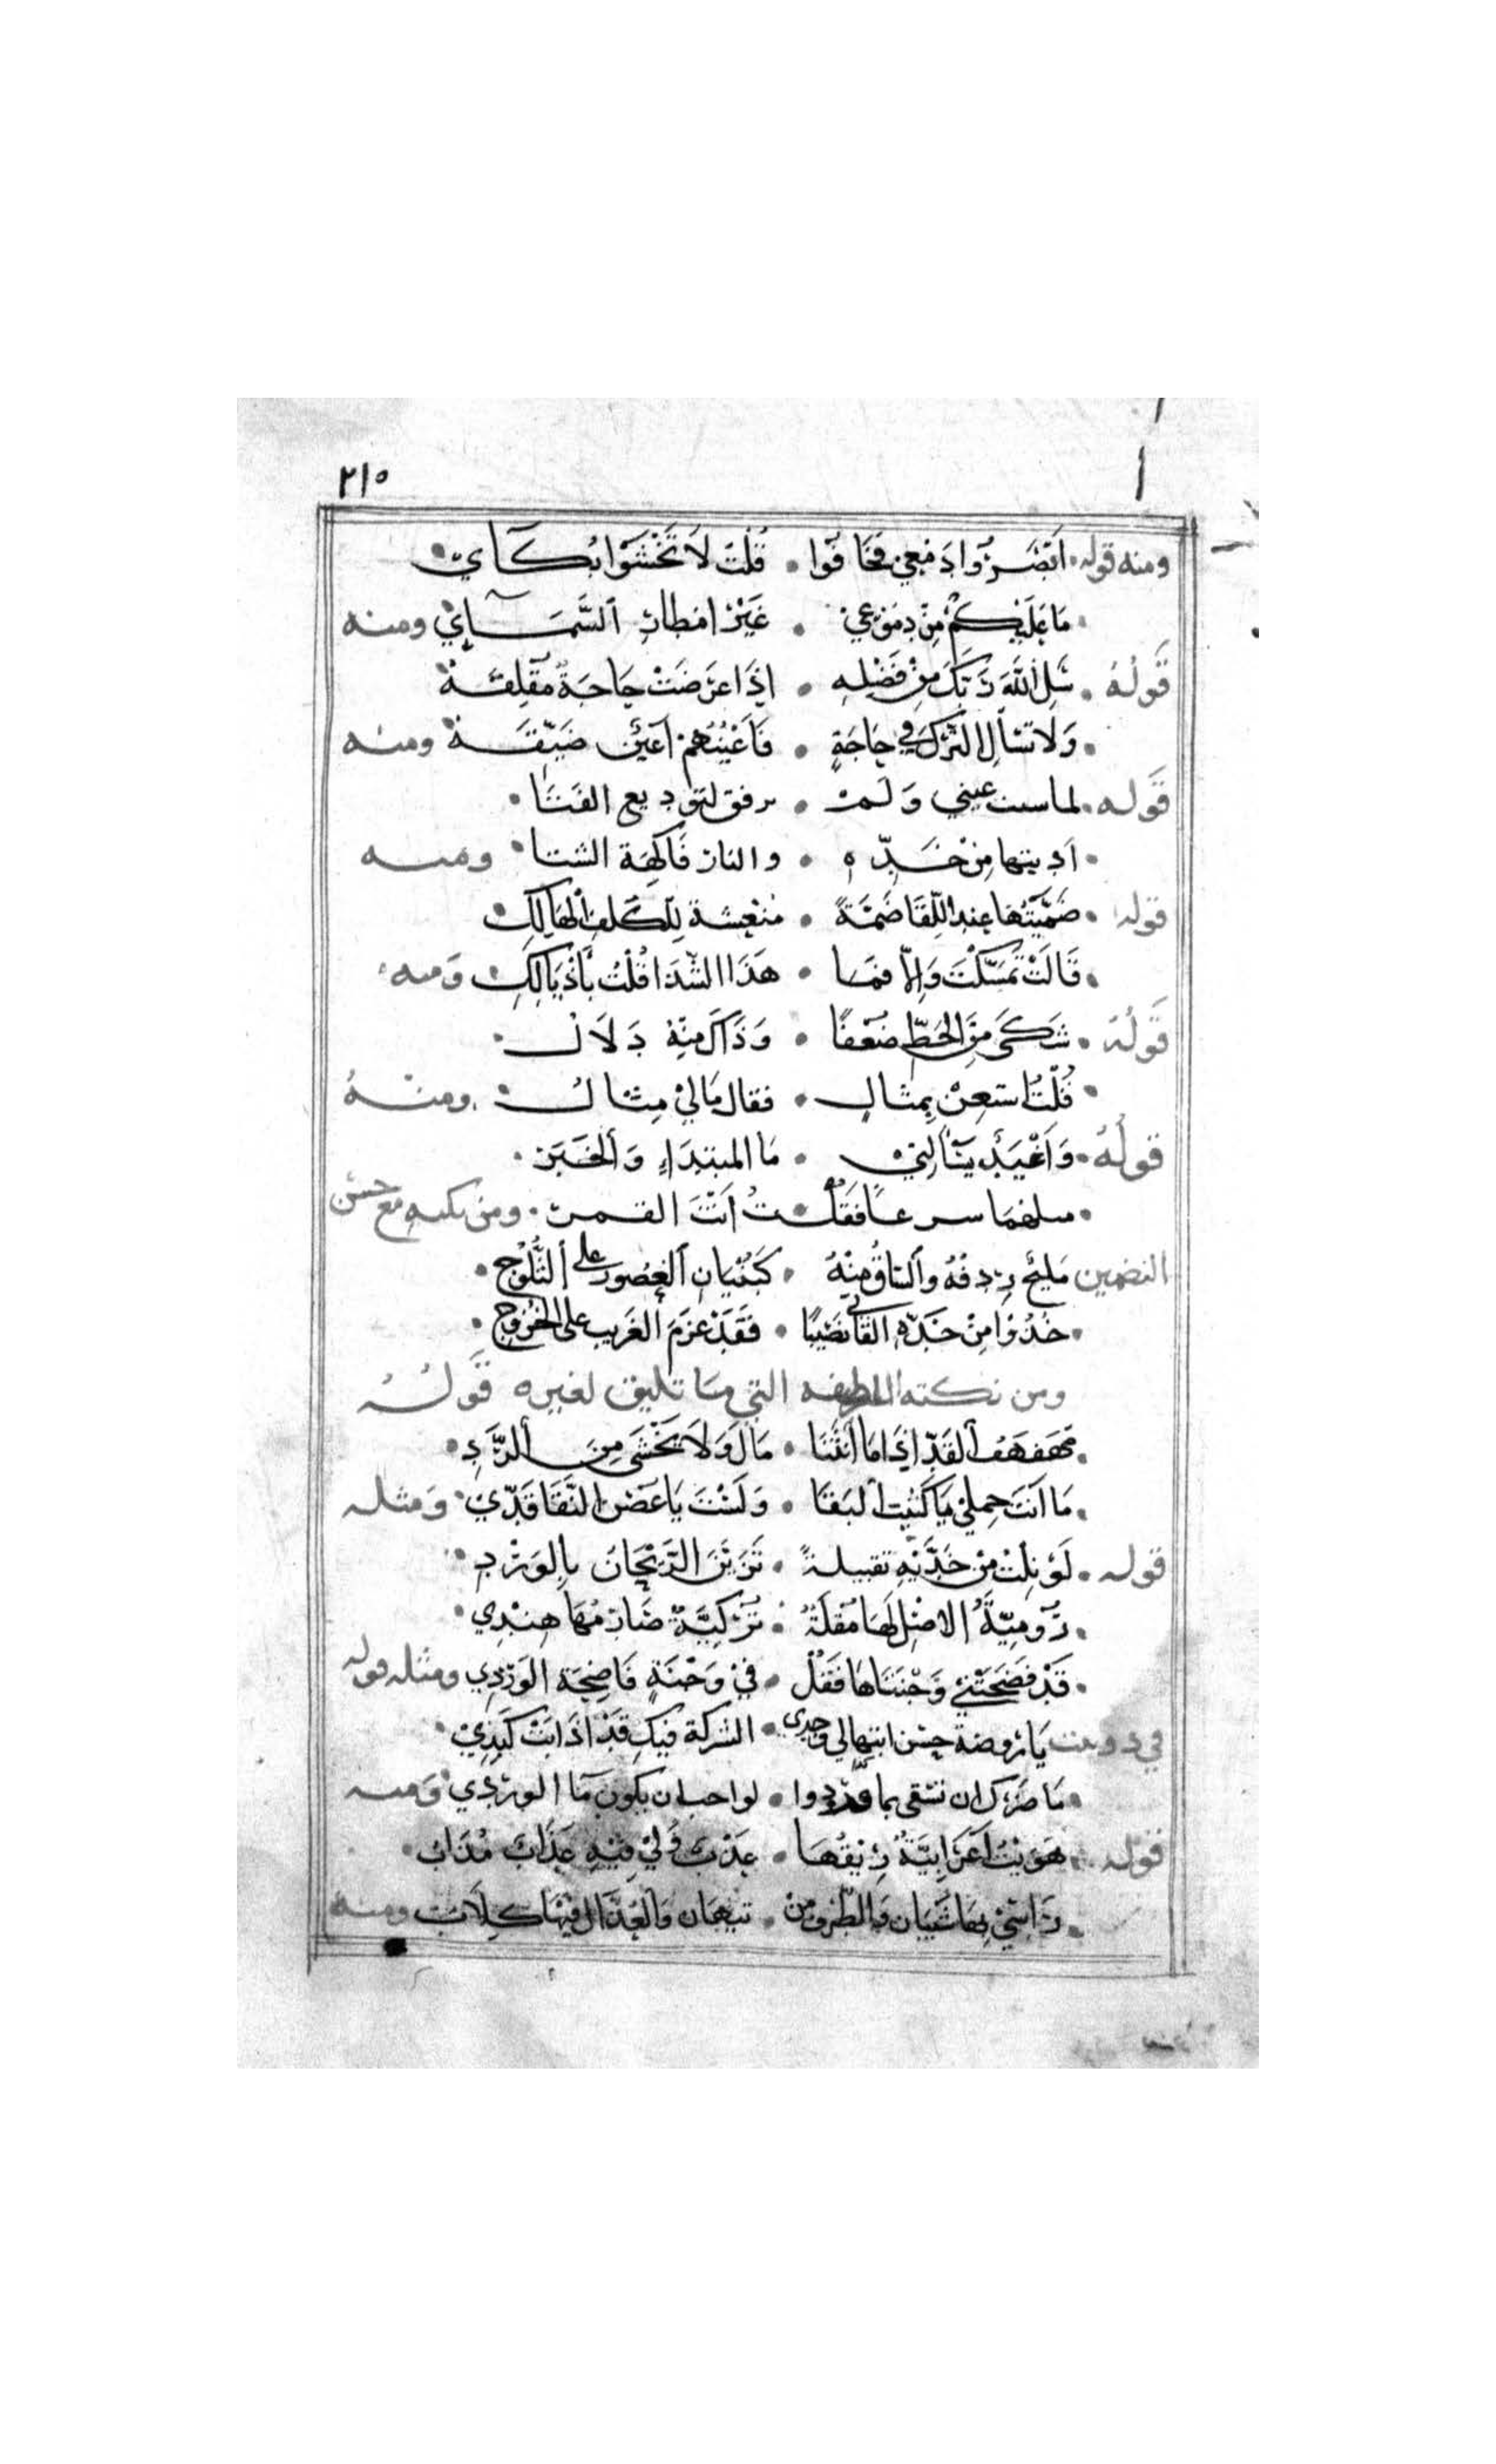 ٢١٥
ومنه قوله • اَبْصَرُوا دَمْعِي فَخَافُوا • قُلْتُ لَا تَخْشَوْا بُكَآيْ •
• مَا عَلَيْكُمْ مِنْ دُمُوعِي • غَيْرُ امْطَارِ السَّمَآيْ ومنه
قَوْلُهُ • سَلِ اللهَ رَبَّكَ مِنْ فَضْلِهِ • اِذَا عَرَضَتْ حَاجَةٌ مُقْلِقَهْ
• وَلَا تسْأَلِ التُّرْكَ فِي حَاجَةٍ • فَأَعْيُنُهُمْ اَعْيُنٌ ضَيِّقَهْ ومنه
قَوله • عيني وَلم • يرفق لتوديع الفتَا •
• ادنيتها مِنْ خَدِّه • والنار فَاكِهَة الشتا • ومنه
قوله • ضَمَمْتُهَا عِنْدَ اللِّقَا ضَمَّةً • مُنْعِشَة لِلْكَلِفِ الْهَالِكِ
• قَالَتْ تَمَسَّكْتَ وَالّا فمَا • هَذَا الشَّذَا قُلْتُ بأَذْيَالِكِ • وَمنه
قَوْلُهُ • شَكَى مِنَ الحَظِّ ضُعْفًا • وَذَاكَ مِنْهُ دَلَالْ •
• قُلْتُ اسْتَعِنْ بِمِثَالٍ • فقال مَا لِيْ مِثَالْ • ومنْهُ
قَولُهُ • وَاَغْيَدٍ يَسْأَلُنِيْ • مَا المُبْتَدَاء وَالْخَبَرْ •
• مثلهُمَا سرعًا فَقُلْتُ اَنْتَ القمرْ • ومن نكته مع حسن
التضمين مَلِيْحٌ رِدفُهُ وَالسَّاقُ مِنْهُ • كَبُنْيَانِ القُصُورِ على الثُّلُوْجِ •
• خُذُوْا مِنْ خَدِّهِ القَانِي نَصِيْبًا • فَقَدْ عَزَمَ الغَرِيب على الخُرُوْجِ •
ومن نكته اللطيفه التي مَا تليق لغيره قَوْلُهُ
• مُهَفْهَفُ القَدِّ اِذَا مَا انْثَنَا • مَالَ وَلَا يَخْشَى مِنَ الرَّدِّ •
• مَا اَنْتَ حِمْلِيْ يَا كَثِيبَ النَقَا • وَلَسْتَ يَا غُصْنَ النَّقَا قَدِّيْ • وَمثله
قوله • لَوْ نِلْتُ مِنْ خَدَّيْهِ تقبيلةً • تَزَيَّنَ الرَّيْحَانُ بِالوَرْدِ •
• رُوْمِيَّةُ الاصْلِ لَهَا مُقْلَةٌ • تُرْكِيَّةٌ صَارِمُهَا هِنْدِي •
• قَدْ فَضَحَتْنِي وَجْنَتَاهَا فَقُلْ • فِيْ وَجْنَةٍ فَاضِحَة الوَرْدِي ومثله قوله
في دوبيت يَا رَوضة حُسْن ابتهالي وجدى • الشركة فيكِ قَدْ اَذَابَتْ كَبِدِيْ •
• مَا ضَرّكِ ان نسْقى بما وردوا • لو احب ان يكون مَآ الوردي • وَمنه
قوله • هَوِيْتُ اَعْرَابِيَّةً رِيْقُهَا • عَذْبٌ وَلِيْ فِيْهِ عَذَابٌ مُذَابْ •
• رَاسِيْ بِهَا شَيْبَان وَالطَّرْف مِنْ • نَبْهَان وَالعُذَّال فِيْهَا كِلَابْ ومنه